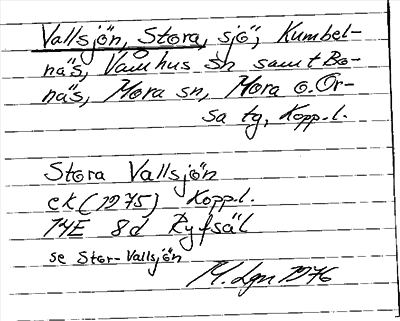 Vallsjön, Stora, sjö, Kumbel-
näs, Våmhus sn samt Bo-
näs, Mora sn, Mora o. Or-
sa tg, Kopp.l.
Stora Vallsjön
ek (1975) Kopp.l.
14E 8d Ryfsäl
se Stor-Vallsjön
M. Lgn 1976